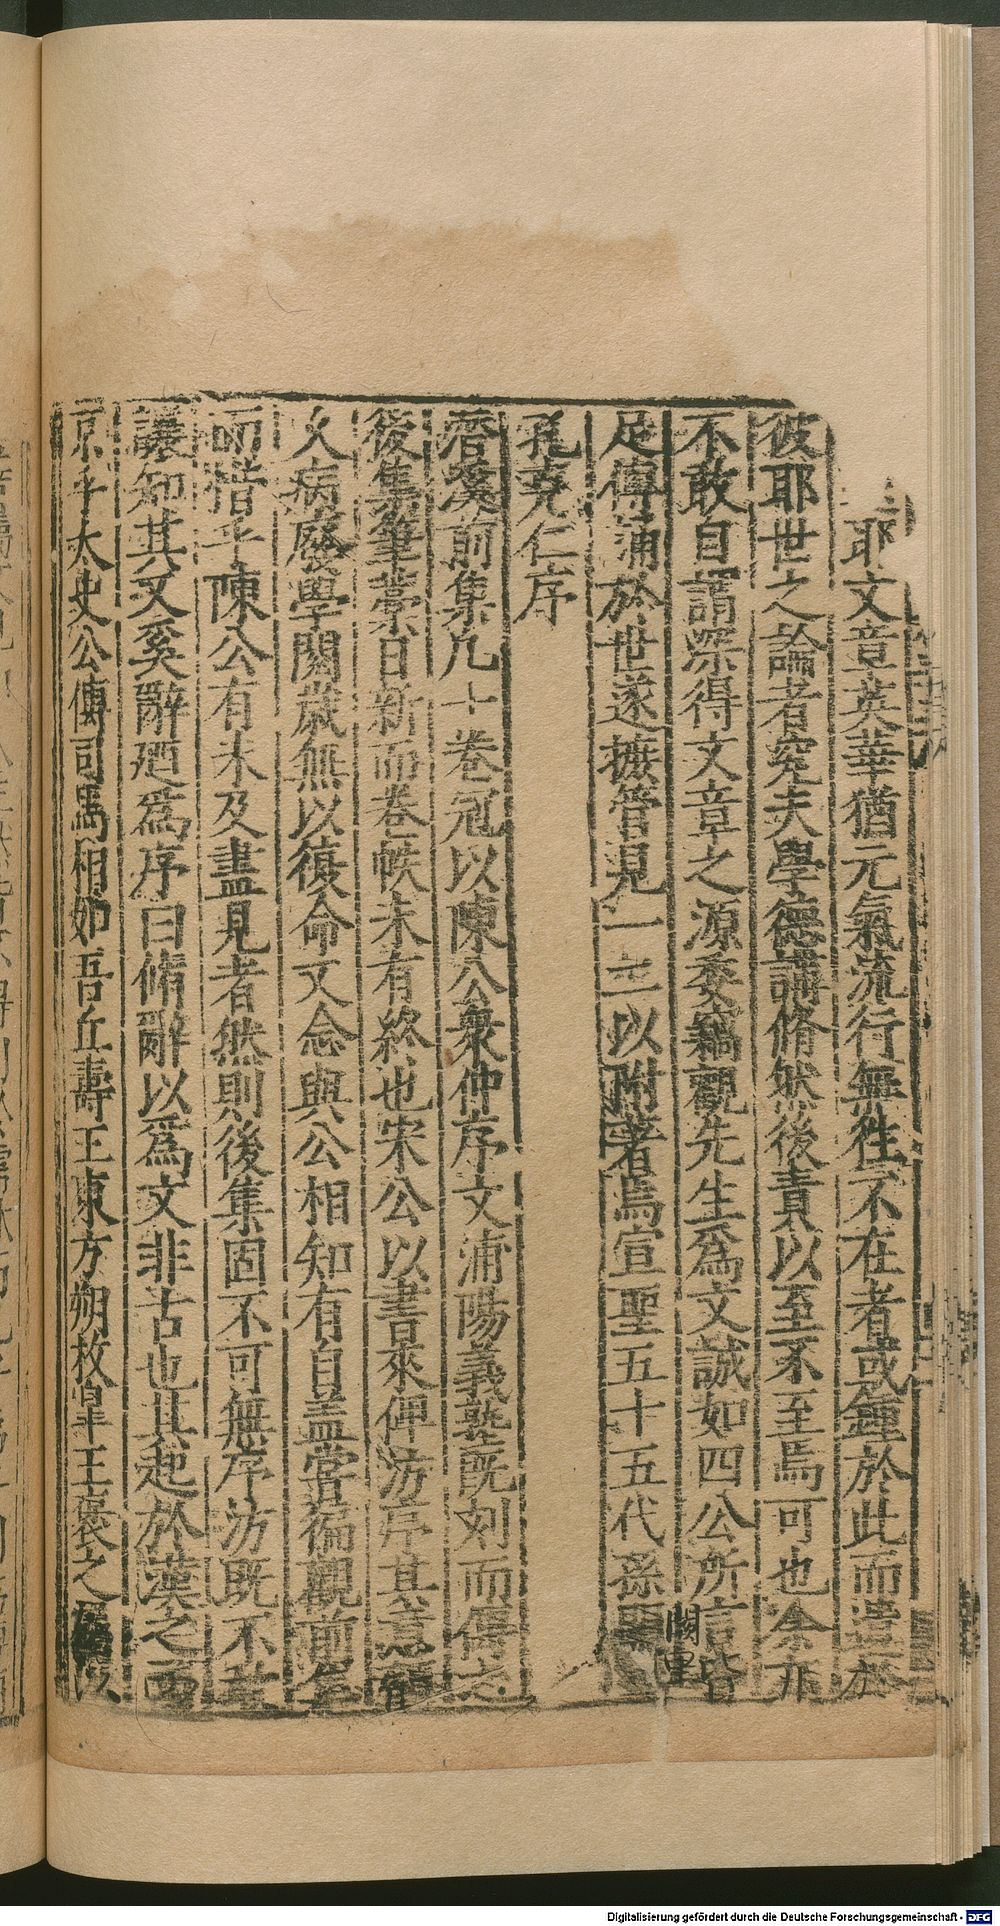 耶文章英華猶元氣流行無徃不在者或鍾於此而遺於
彼耶世之論者究夫學德講脩然後責以至不至焉可也余亦
不敢自謂深得文章之源委竊觀先生爲文誠如四公所言皆
足傳誦於世遂摭管見一二以附著焉宣聖五十五代孫闕里
孔克仁序
潛溪前集凡十卷冠以陳公衆仲序文浦陽義塾既刻而傳之
後集筆藁日新而卷帙未有終也宋公以書來俾汸序其意龍
火病廢學閱歲無以復命又念與公相知有自盖嘗徧觀前集
而惜乎陳公有未及盡見者然則後集固不可無序汸既不敢
讓知其又奚辭廼爲序曰脩辭以爲文非古也其起於漢之西
京乎太史公傳司馬相如吾丘壽王東方朔枚皐王褒之